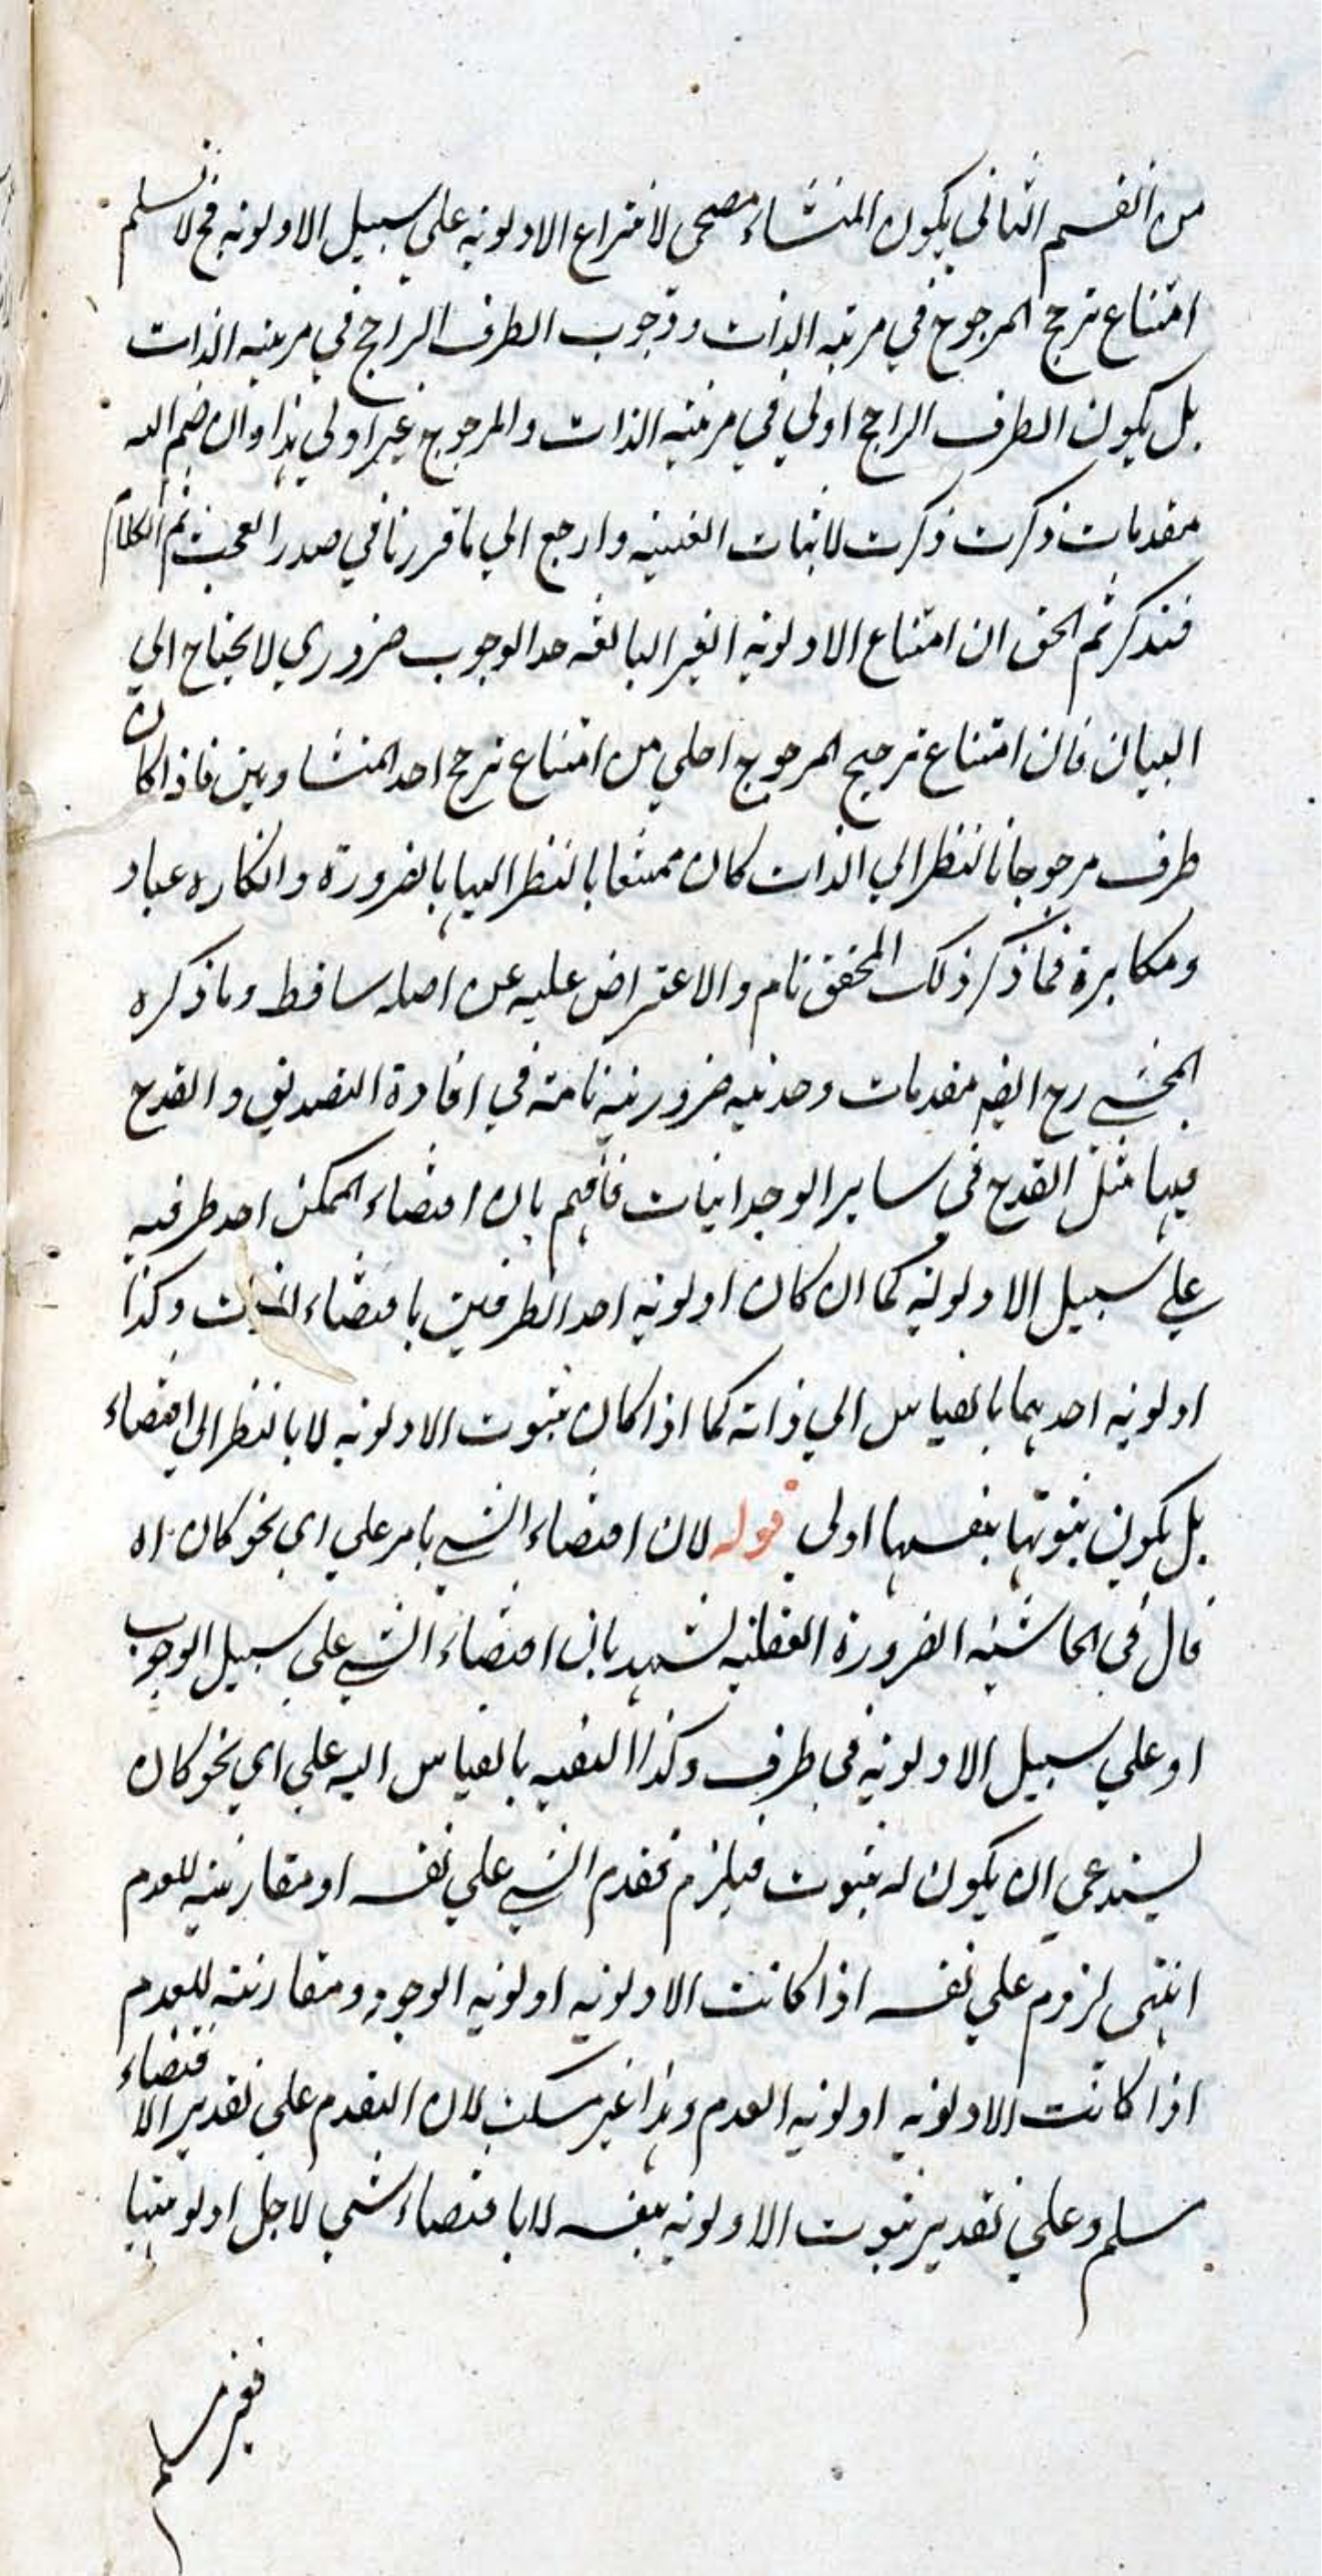 من القسم الثاني يكون المنشاء مصحح لانتزاع الاولوية علي سبيل الاولوية فح لا نسلم
امتناع ترجح المرجوح في مرتبه الذات ووجوب الطرف الراجح في مرتبه الذات
بل يكون الطرف الراجح اولي في مرتبه الذات والمرجوح غير اولي هذا وان ضم اليه
مقدمات ذكرت ذكرت لاثبات العينيه وارجع الي ما قررنا في صدر المبحث تم الكلام
فتذكر ثم الحق ان امتناع الاولويه الغير البالغه حد الوجوب ضروري لا يحتاج الي
البيان فان امتناع ترجيح المرجوح اجلي من امتناع ترجح احد المتساويين فاذا كان
طرف مرجوحا بالنظر الي الذات كان ممتنعا بالنظر اليها بالضرورة وانكاره عناد
ومكابرة فما ذكر ذلك المحقق تام والاعتراض عليه عن اصله ساقط وما ذكره
المحشي رح ايضا مقدمات وحدنيه ضروريه تامة في افادة التصديق والقدح
فيها مثل القدح في ساير الوجدانيات فافهم بان اقتضاء الممكن احد طرفيه
علي سبيل الاولوية كما ان كان اولويه احد الطرفين باقتضاء الذات وكذا
اولويه احديهما بالقياس الي ذاته كما اذا كان ثبوت الاولويه لا بالنظر الي اقتضاء
بل يكون ثبوتها بنفسها اولي قوله لان اقتضاء الشي بامر علي اي نحو كان اه
قال في الحاشيه الضرورة العقليه تشهد بان اقتضاء الشي علي سبيل الوجوب
او علي سبيل الاولويه في طرف وكذا التقيه بالقياس اليه علي اي نحو كان
يستدعي ان يكون له ثبوت فيلزم تقدم الشي علي نفسه او مقارنيه للعدم
انتهي لزوم علي نفسه اذا كانت الاولويه اولويه الوجود ومقارنته للعدم
اذا كانت الاولويه اولويه العدم وهذا غير مسلم لان التقدم علي تقدير الاقتضاء
مسلم وعلي تقدير ثبوت الاولويه بنفسه لا باقتضاء شي لاجل اولويتها
فغير مسلم